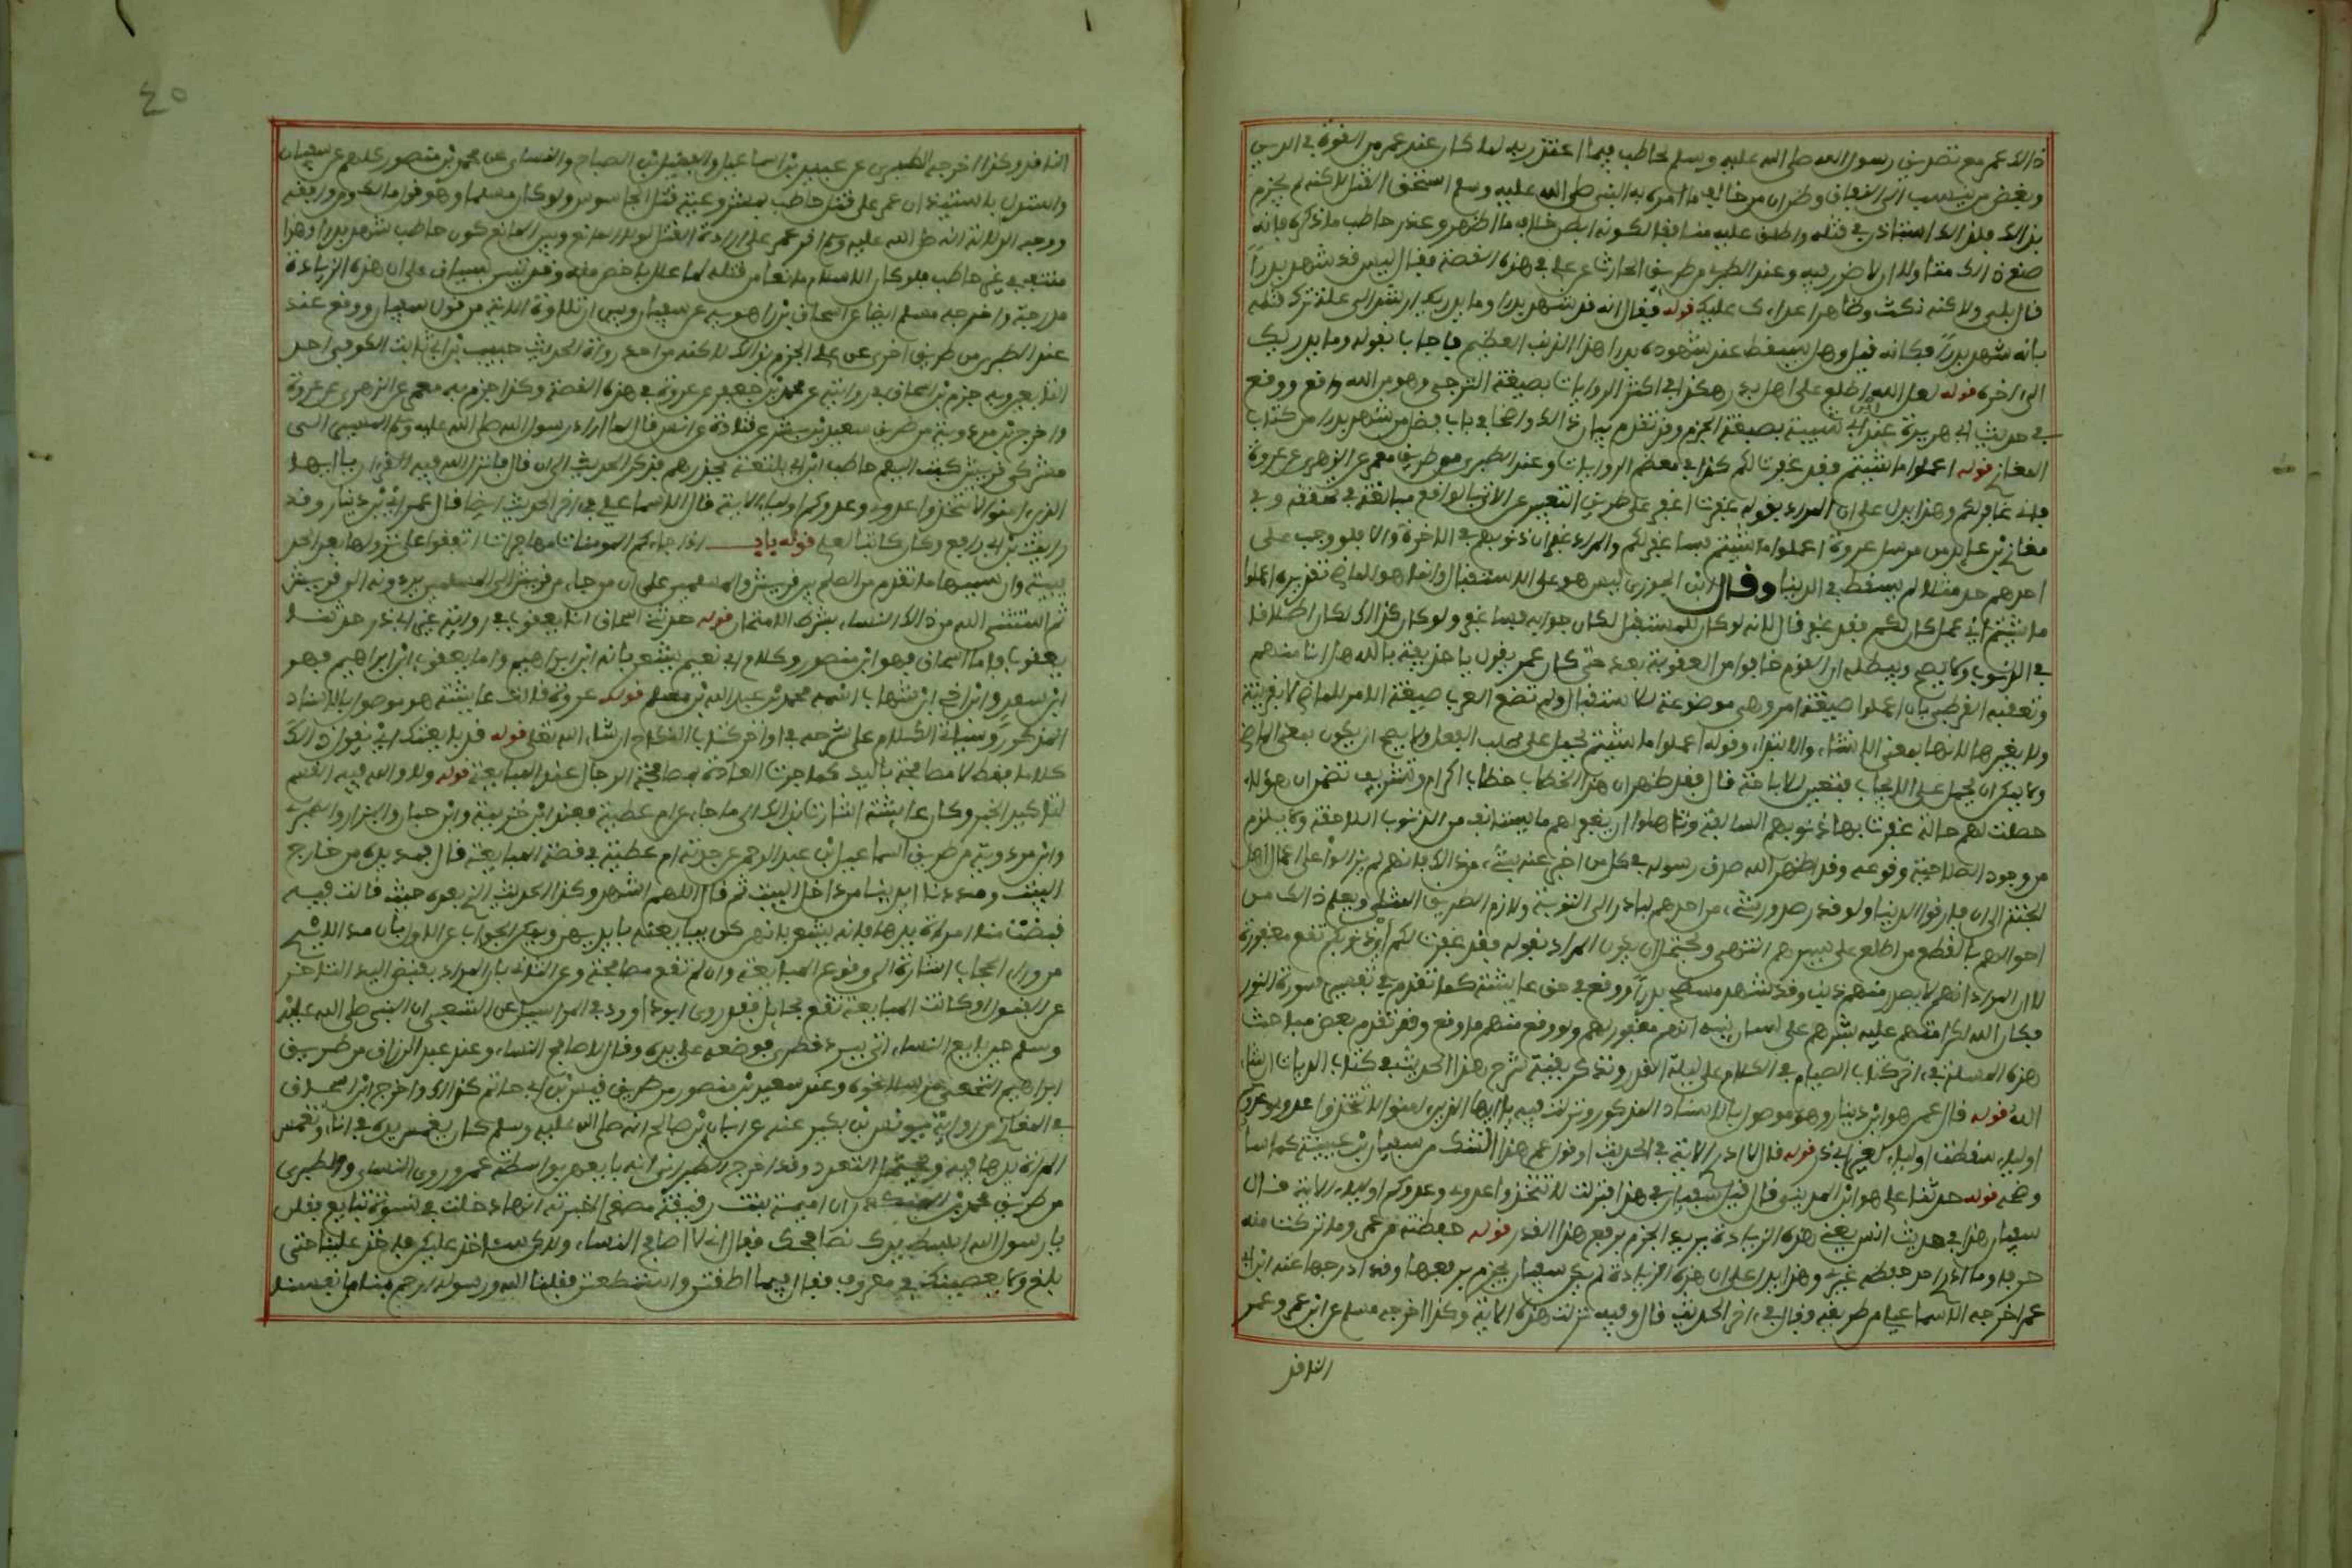 ذلك عمر مع تصديق رسول الله صلى الله عليه وسلم لحاطب فيما اعتذر به لما كان عند عمر من القوة في الدين
وبغض من ينسب الى النفاق وظن ان من خالف ما امره به النبي صلى الله عليه وسلم استحق القتل لكنه لم يجزم
بذلك فلذلك استاذن في قتله واطلق عليه منافقا لكونه ابطن خلاف ما اظهر وعذر حاطب ما ذكره فانه
صنع ذلك متاولا ان لا ضرر فيه وعند الطبري من طريق الحارث عن علي في هذه القصة فقال اليس قد شهد بدرا
قال بلى ولاكنه نكث وظاهر اعداءك عليك قوله فقال انه قد شهد بدرا وما يدريك ارشد الى علة ترك قتله
بانه شهد بدرا فكانه قيل وهل يسقط عنه شهوده بدرا هذا الذنب العظيم فاجاب بقوله وما يدريك
الى اخره قوله لعل الله اطلع على اهل بدر هكذا في اكثر الروايات بصيغة الترجي وهو من الله واقع ووقع
في حديث ابي هريرة عند ابن ابي شيبة بصيغة الجزم وقد تقدم بيان ذلك واضحا في باب فضل من شهد بدرا من كتاب
المغازي قوله اعملوا ما شئتم فقد غفرت لكم كذا في معظم الروايات وعند الطبري من طريق معمر عن الزهري عن عروة
فاني غافر لكم وهذا يدل على ان المراد بقوله غفرت اغفر على طريق التعبير عن الاتي بالواقع مبالغة في تحققه وفي
مغازي بن عايذ من مرسل عروة اعملوا ما شئتم فساغفر لكم والمراد غفران ذنوبهم في الاخرة والا فلو وجب على
احدهم حد مثلا لم يسقط في الدنيا وقال ابن الجوزي ليس هو على الاستقبال وانما هو للماضي تقديره اعملوا
ما شئتم اي عمل كان لكم فقد غفر قال لانه لو كان للمستقبل لكان جوابه فساغفر ولو كان كذلك لكان اطلاقا
في الذنوب ولا يصح ويبطله ان القوم خافوا من العقوبة بعد حتى كان عمر يقول يا حذيفة بالله هل انا منهم
وتعقبه القرطبي بان اعملوا صيغة امر وهي موضوعة للاستقبال ولم تضع العرب صيغة الامر للماضي لا بقرينة
ولا بغيرها لانها بمعنى الانشاء والابتداء وقوله اعملوا ما شئتم يحمل على طلب الفعل ولا يصح ان يكون بمعنى الماضي
ولا يمكن ان يحمل على الايجاب فتعين للاباحة قال فقد ظهر ان هذا الخطاب خطاب اكرام وتشريف تضمن ان هؤلاء
حصلت لهم حالة غفرت بها ذنوبهم السابقة وتاهلوا ان يغفر لهم ما يستانف من الذنوب اللاحقة ولا يلزم
من وجود الصلاحية وقوعه وقد اظهر الله صدق رسوله في كل من اخبر عنه بشيء من ذلك فانهم لم يزالوا على اعمال اهل
الجنة الى ان فارقوا الدنيا ولو قدر صدور شيء من احدهم لبادر الى التوبة ولازم الطريق المثلى ويعلم ذلك من
احوالهم بالقطع من اطلع على سيرهم انتهى ويحتمل ان يكون المراد بقوله فقد غفرت لكم اي ذنوبكم تقع مغفورة
لا ان المراد انهم لا يصدر منهم ذنب وقد شهد مسطح بدرا ووقع في حق عايشة كما تقدم في تفسير سورة النور
فكان الله لكرامتهم عليه بشرهم على لسان نبيه انهم مغفور لهم ولو وقع منهم ما وقع وقد تقدم بعض مباحث
هذه المسئلة في اخر كتاب الصيام في الكلام على ليلة القدر ونذكر بقية شرح هذا الحديث في كتاب الديات ان شاء
الله قوله قال عمر هو ابن دينار وهو موصول بالاسناد المذكور ونزلت فيه يا ايها الذين امنوا لا تتخذوا عدوي وعدوكم
اولياء سقطت اولياء لغير ابي ذر قوله قال لا ادري الاية في الحديث او قول عمر هذا الشك من سفيان بن عيينة كما سا
وضحه قوله حدثنا علي هو ابن المديني قال قيل لسفيان في هذا فنزلت لا تتخذوا عدوي وعدوكم اولياء الاية قال
سفيان هذا في حديث الناس يعني هذه الزيادة يريد الجزم برفع هذا القدر قوله حفظته من عمرو ما تركت منه
حرفا وما ارى احدا حفظه غيري وهذا يدل على ان هذه الزيادة لم يكن سفيان يجزم برفعها وقد ادرجها عنه ابن ابي
عمر اخرجه الاسماعيلي من طريقه وقال في اخر الحديث قال وفيه نزلت هذه الاية وكذا اخرجه مسلم عن ابن ابي عمر وعمر
الناقد
٤٥
الناقد وكذا اخرجه الطبري عن عبيد بن اسماعيل والفضل بن الصباح والنساءي عن محمد بن منصور كلهم عن سفيان
واستدل باستيذان عمر على قتل حاطب لمشروعية قتل الجاسوس ولو كان مسلما وهو قول مالك ومن وافقه
ووجه الدلالة انه صلى الله عليه وسلم اقر عمر على ارادة القتل لولا المانع وبين المانع كون حاطب شهد بدرا وهذا
منتف في غير حاطب فلو كان الاسلام مانعا من قتله لما علل باخص منه وقد بين سياق علي ان هذه الزيادة
مدرجة واخرجه مسلم ايضا عن اسحاق بن راهويه عن سفيان وبين ان تلاوة الاية من قول سفيان ووقع عند
عند الطبري من طريق اخرى عن علي الجزم بذلك لاكنه من احد رواة الحديث حبيب بن ابي ثابت الكوفي احد
التابعين وبه جزم بن اسحاق في روايته عن محمد بن جعفر عن عروة في هذه القصة وكذا جزم به معمر عن الزهري عن عروة
واخرج بن مردويه من طريق سعيد بن بشير عن قتادة عن انس قال لما اراد رسول الله صلى الله عليه وسلم المسير الى
مشركي قريش كتب اليهم حاطب ابن ابي بلتعة يحذرهم فذكر الحديث الى ان قال فانزل الله فيه القرءان يا ايها
الذين امنوا لا تتخذوا عدوي وعدوكم اولياء الاية قال الاسماعيلي في اخر الحديث ايضا قال عمر اي بن دينار وقد
رايت بن ابي رافع وكان كاتبا لعلي قوله باب اذا جاءكم المومنات مهاجرات اتفقوا على نزولها بعد الحد
يبية وان سببها ما تقدم من الصلح بين قريش والمسلمين على ان من جاء من قريش الى المسلمين يردونه الى قريش
ثم استثنى الله من ذلك النساء بشرط الامتحان قوله حدثنا اسحاق انا يعقوب في رواية غير ابي ذر حدثنا
يعقوب فاما اسحاق فهو ابن منصور وكلام ابي نعيم يشعر بانه ابن ابراهيم واما يعقوب ابن ابراهيم فهو
ابن سعد وابن اخي ابن شهاب اسمه محمد بن عبد الله بن مسلم قوله عروة قالت عايشة هو موصول بالاسناد
المذكور وسياتي الكلام على شرحه في اواخر كتاب النكاح ان شاء الله تعلى قوله قد بايعتك اي يقول ذلك
كلاما فقط لا مصافحة باليد كما جرت العادة بمصافحة الرجال عند المبايعة قوله ولا والله فيه القسم
لتاكيد الخبر وكان عايشة اشارت بذلك الى ما جاء عن ام عطية فعند ابن خزيمة وابن حبان والبزار والطبري
وابن مردويه من طريق اسماعيل بن عبد الرحمن عن جدته ام عطية في قصة المبايعة قال فمد يده من خارج
البيت ومددنا ايدينا من داخل البيت ثم قال اللهم اشهد وكذا الحديث الذي بعده حيث قالت فيه
قبضت منا امراة يدها فانه يشعر بانهن كن يبايعنه بايديهن ويمكن الجواب عن الاول بان مد الايدي
من وراء الحجاب اشارة الى وقوع المبايعة وان لم تقع مصافحة وعن الثاني بان المراد بقبض اليد التاخر
عن القبول او كانت المبايعة تقع بحايل فقد روى ابو داوود في المراسيل عن الشعبي ان النبي صلى الله عليه
وسلم حين بايع النساء اتي ببرد قطري فوضعه على يده وقال لا اصافح النساء وعند عبد الرزاق من طريق
ابراهيم النخعي مرسلا نحوه وعند سعيد بن منصور من طريق قيس بن ابي حازم كذلك واخرج ابن اسحاق
في المغازي من رواية يونس بن بكير عنه عن ابان بن صالح انه صلى الله عليه وسلم كان يغمس يده في اناء وتغمس
المراة يدها فيه ويحتمل التعدد وقد اخرج الطبراني انه بايعهن بواسطة عمر وروى النساءي والطبري
من طريق محمد بن المنكدر ان اميمة بنت رقيقة اخبرته انها دخلت في نسوة تبايع فقلن
يا رسول الله ابسط يدك نصافحك فقال اني لا اصافح النساء ولاكن ساخذ عليكن فاخذ علينا حتى
بلغ ولا يعصينك في معروف فقال فيما اطقتن واستطعتن فقلنا الله ورسوله ارحم بنا من انفسنا